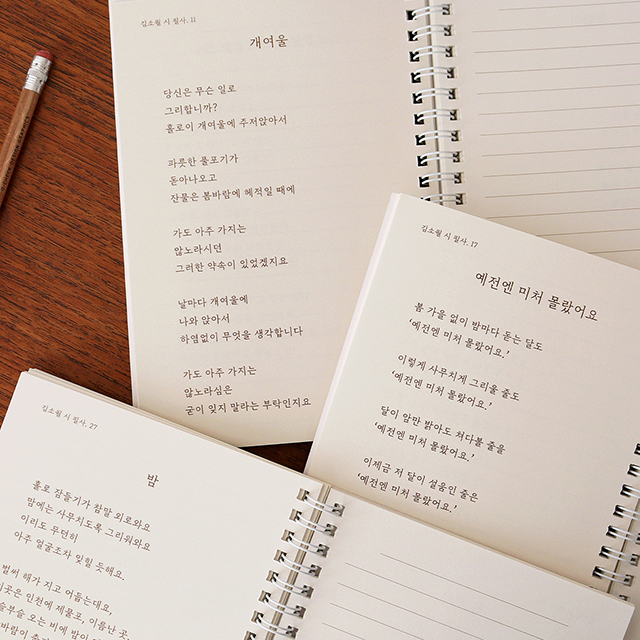 김소월 시 필사. 11
개여울
당신은 무슨 일로
그리합니까?
홀로이 개여울에 주저앉아서
파릇한 풀포기가
돋아나오고
잔물은 봄바람에 헤적일 때에
가도 아주 가지는
않노라시던
그러한 약속이 있었겠지요
날마다 개여울에
나와 앉아서
하염없이 무엇을 생각합니다
가도 아주 가지는
않노라심은
굳이 잊지 말라는 부탁인지요
김소월 시 필사. 17
예전엔 미처 몰랐어요
봄 가을 없이 밤마다 돋는 달도
‘예전엔 미처 몰랐어요.’
이렇게 사무치게 그리울 줄도
‘예전엔 미처 몰랐어요.’
달이 암만 밝아도 쳐다볼 줄을
‘예전엔 미처 몰랐어요.’
이제금 저 달이 설움인 줄은
‘예전엔 미처 몰랐어요.’
김소월 시 필사. 27
밤
홀로 잠들기가 참말 외로와요
맘에는 사무치도록 그리워와요
이리도 무던히
아주 얼굴조차 잊힐 듯해요.
벌써 해가 지고 어둡는데요,
인천에 제물포, 이름난 곳,
오는 비에 밤이
바람이